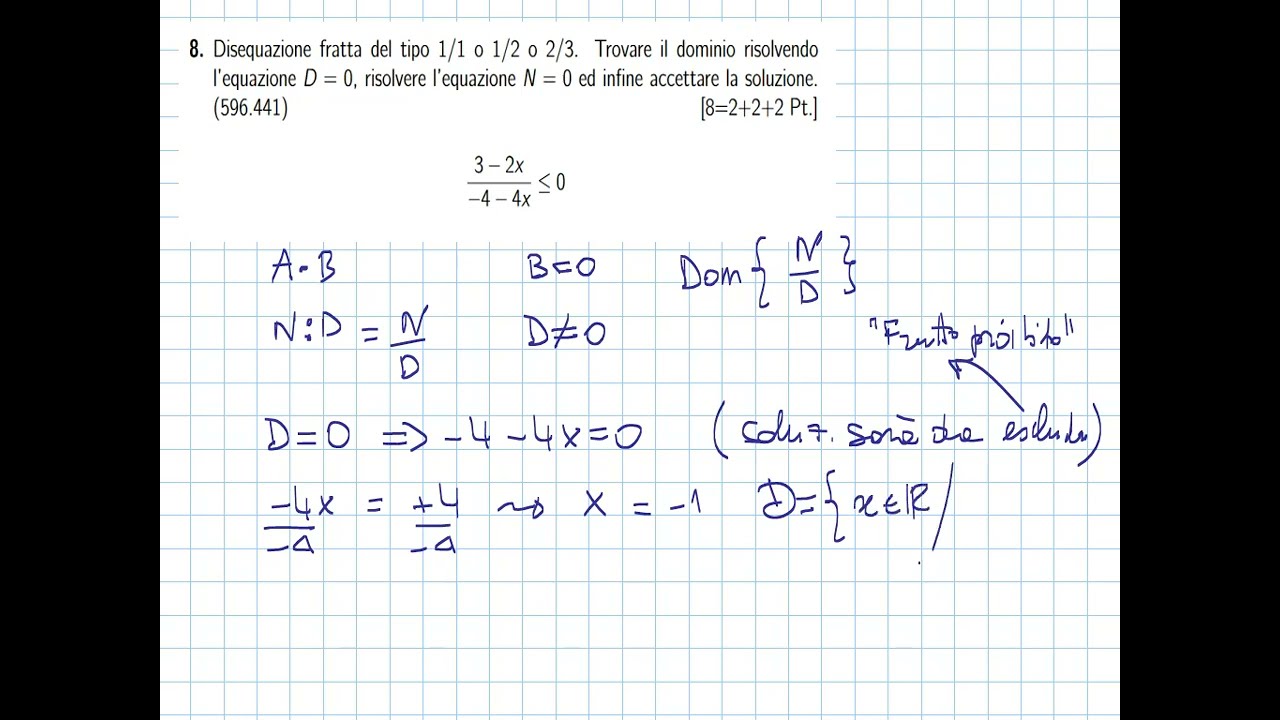 8. Disequazione fratta del tipo 1/1 o 1/2 o 2/3. Trovare il dominio risolvendo
l'equazione D = 0, risolvere l'equazione N = 0 ed infine accettare la soluzione.
(596.441) [8=2+2+2 Pt.]
3 − 2x
−4 − 4x ≤ 0
A · B B = 0 Dom { N/D }
N : D = N/D D ≠ 0
"Frutto proibito"
D = 0 => -4 - 4x = 0 (soluz. sarà da escludere)
-4x/-4 = +4/-4 ⇝ x = -1 D = { x ∈ R /